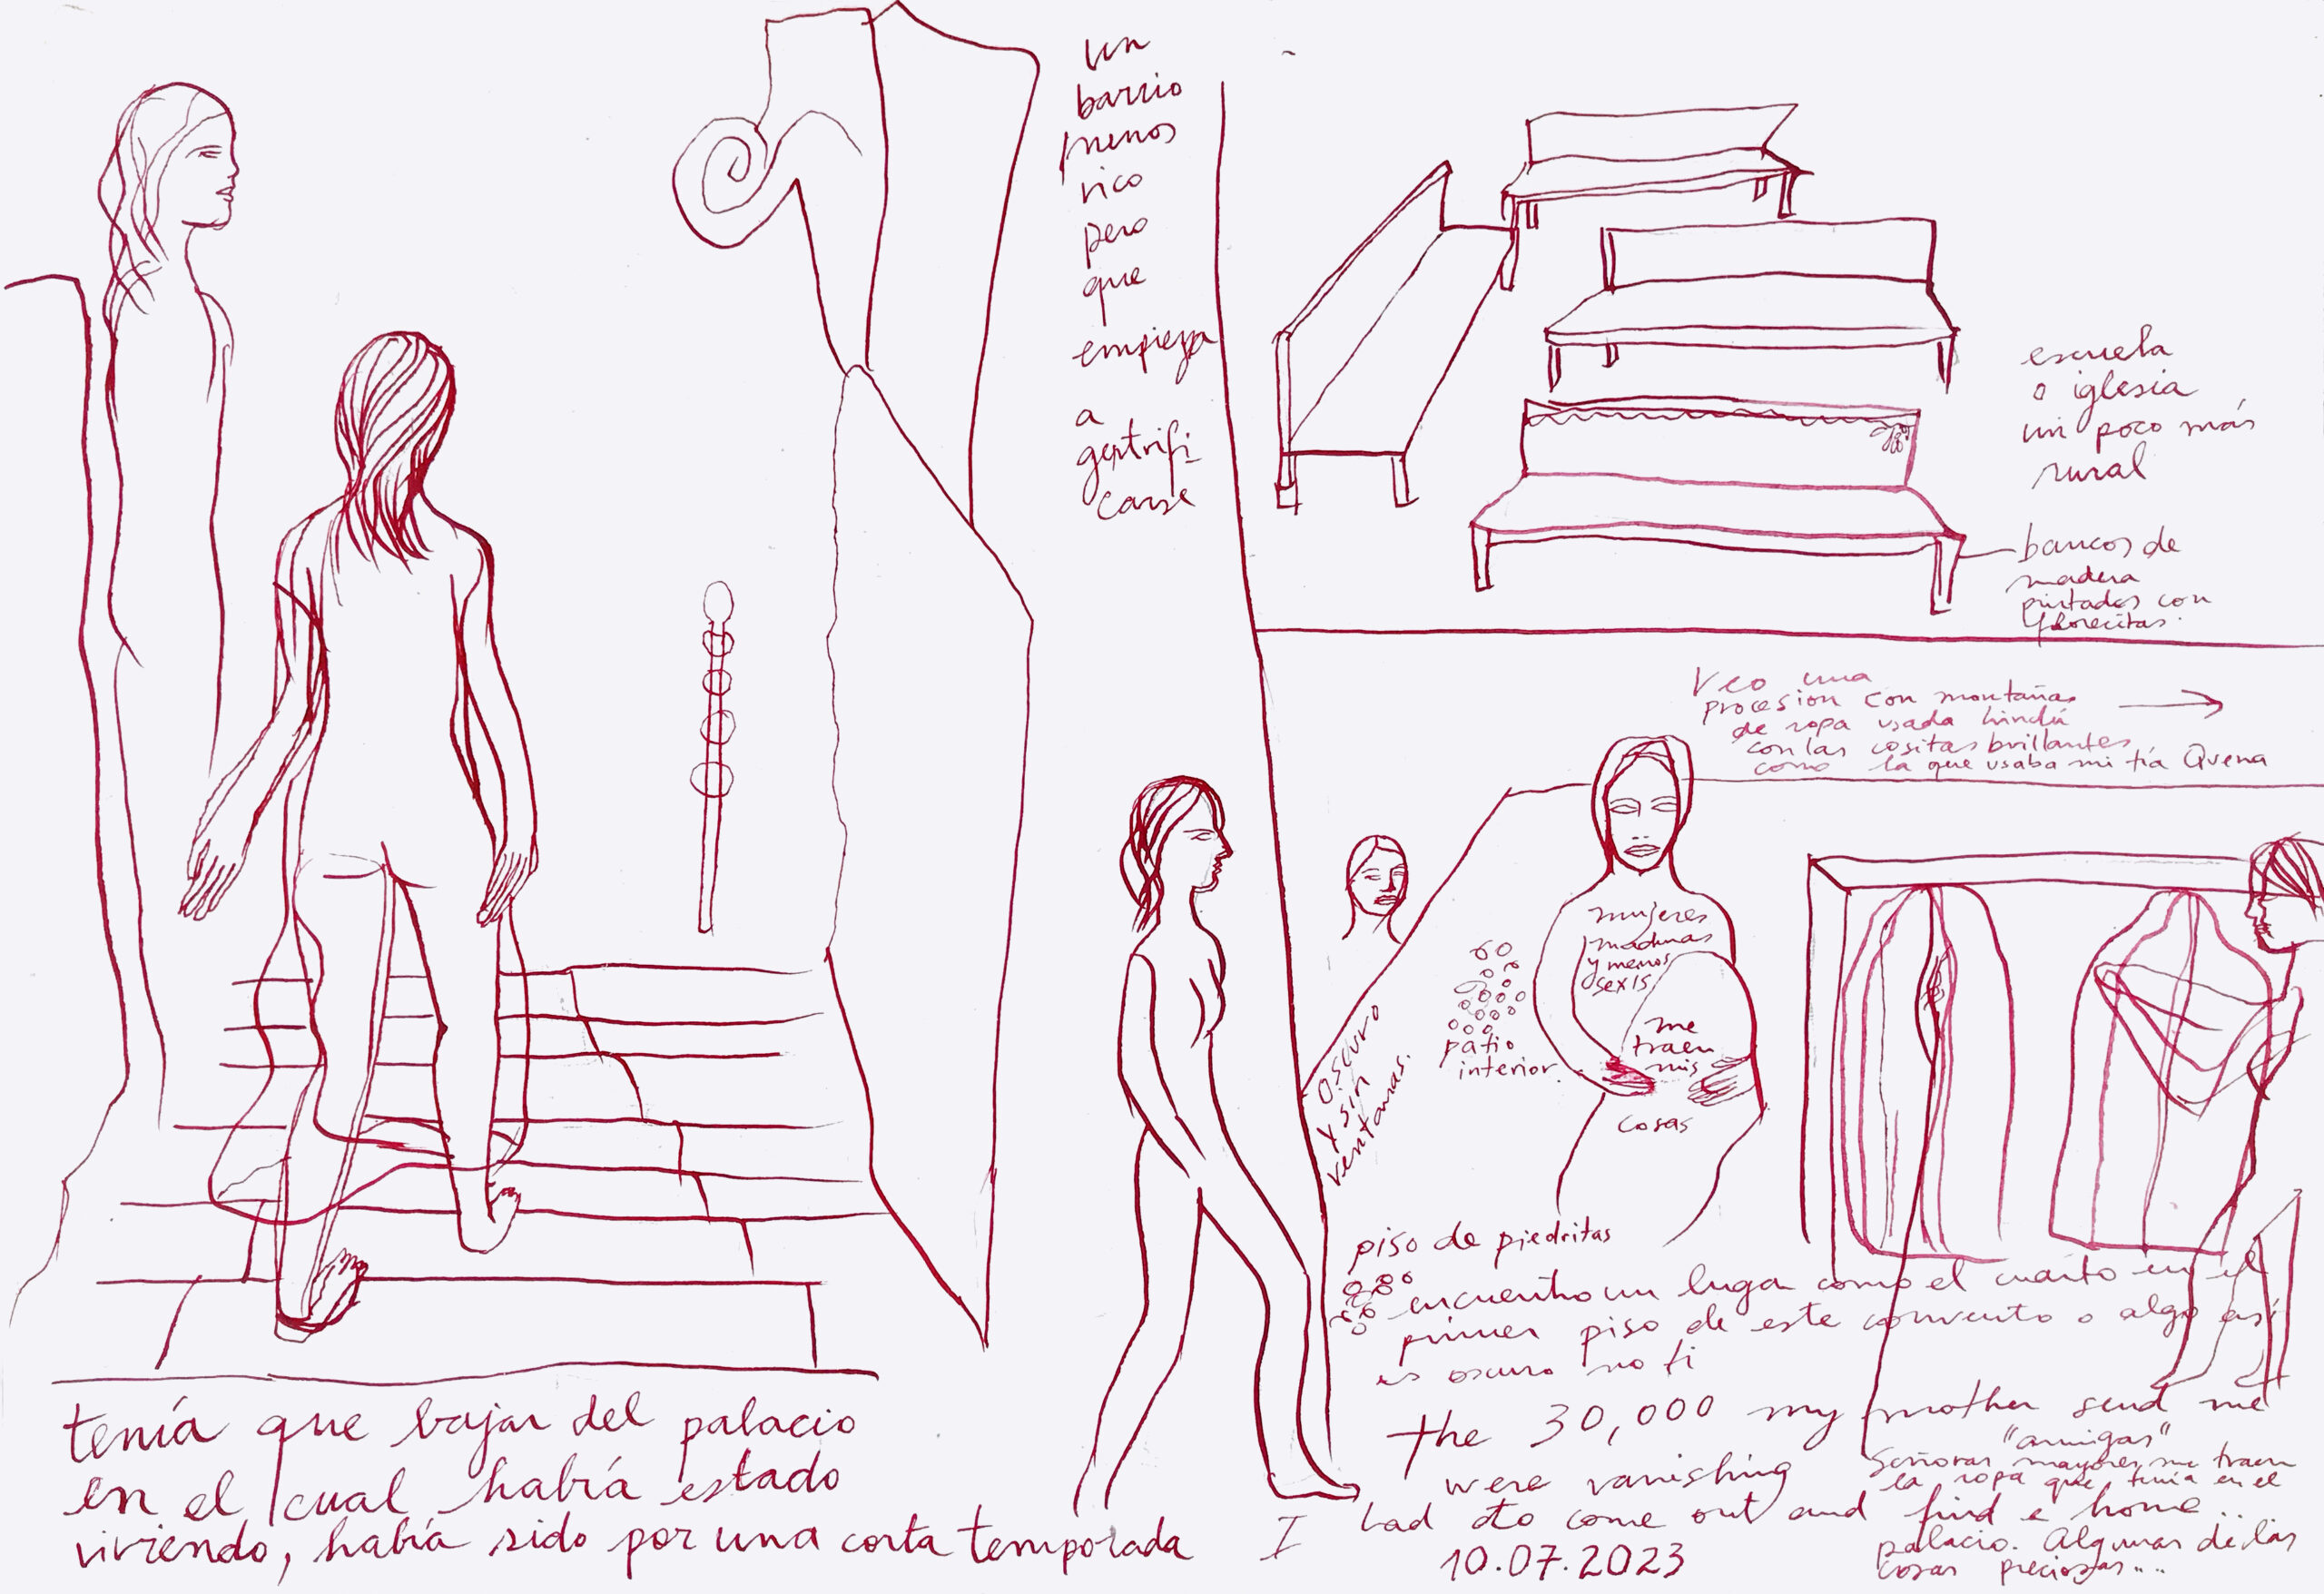 tenía que bajar del palacio
en el cual había estado
viviendo, había sido por una corta temporada
un
barrio
menos
rico
pero
que
empieza
a
gentrifi
carse
escuela
o iglesia
un poco más
rural
bancos de
madera
pintados con
florecitas.
Veo una
procesion con montañas
de ropa usada hindú
con las cositas brillantes
como la que usaba mi tía Quena
oscuro
y sin
ventanas.
patio
interior.
mujeres
maduras
y menos
sexis
me
traen
mis
cosas
piso de piedritas
encuentro un lugar como el cuarto en el
primer piso de este convento o algo así
es oscuro no
the 30,000 my mother send me
were vanishing
I had to come out and find a home..
10.07.2023
"amigas"
Señoras mayores me traen
la ropa que tenía en el
palacio. Algunas de las
cosas preciosas...